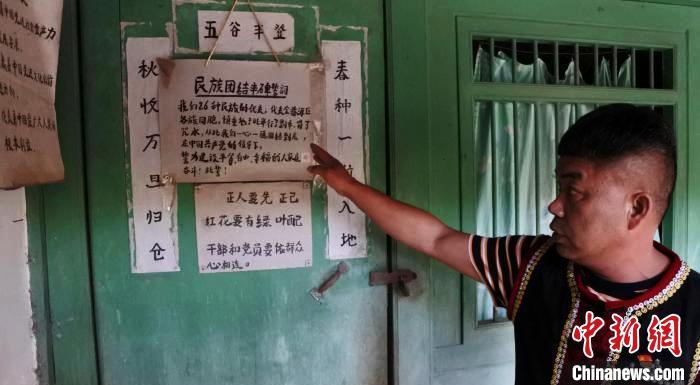 五谷丰登
秋收万旦归仓
春种一粒入地
民族团结丰碑誓词
我们26种民族的代表,代表全普洱区
各族同胞,慎重地于此举行了剽牛,喝了
咒水,从此我们一心一德团结到底,
在中国共产党的领导下,
誓为建设平等自由,幸福的大家庭
奋斗!此誓!
正人要先 正己
红花要有绿叶配
干部和党员要 群众
心相连。
中新网
Chinanews.com